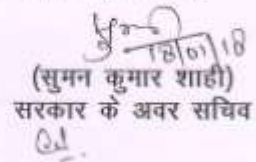 18/01/18
(सुमन कुमार शाही)
सरकार के अवर सचिव